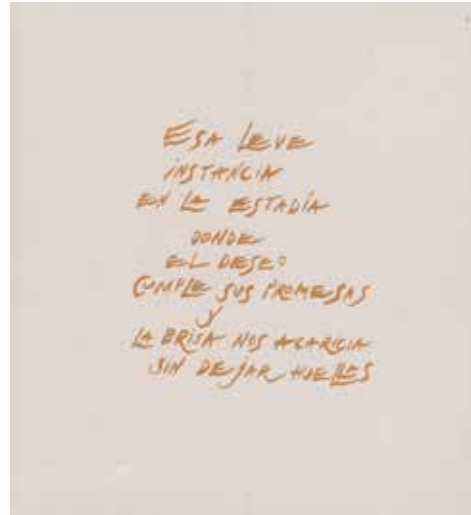 ESA LEVE
INSTANCIA
EN LA ESTADÍA
DONDE
EL DESEO
CUMPLE SUS PROMESAS
Y
LA BRISA NOS ACARICIA
SIN DEJAR HUELLAS